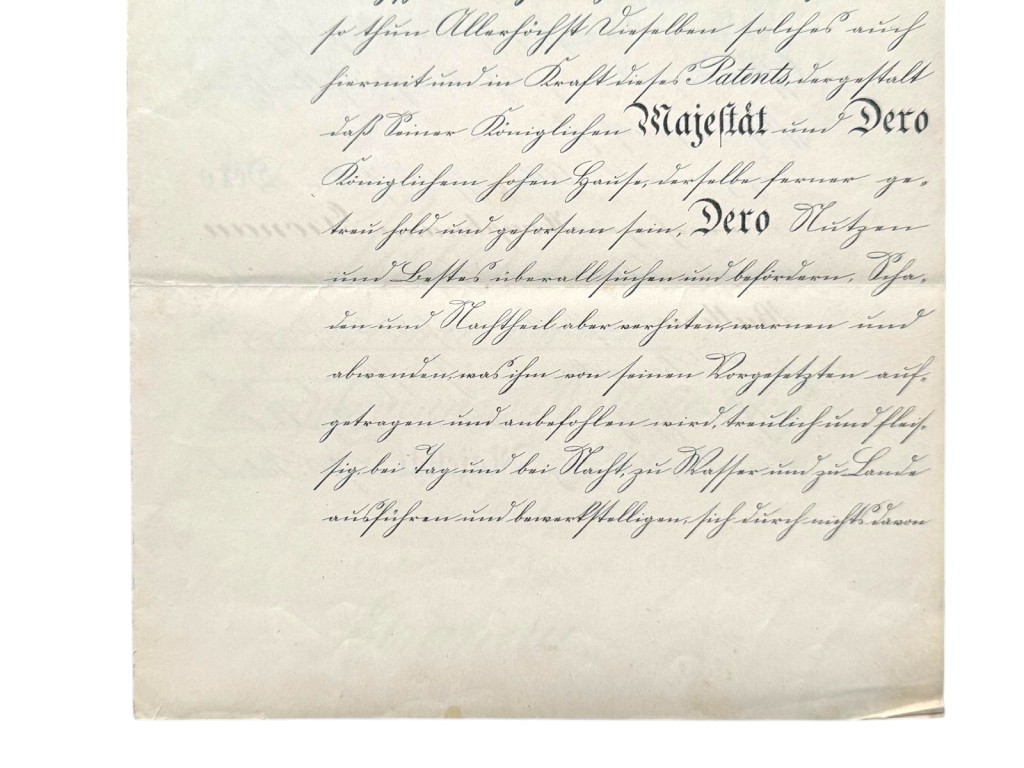 so thun Allerhöchst Dieselben solches auch
hiermit und in Kraft dieses Patents, dergestalt
daß Seiner Königlichen Majestät und Dero
Königlichem hohen Hause, derselbe ferner ge-
treu hold und gehorsam sein, Dero Nutzen
und Bestes überall suchen und befördern, Scha-
den und Nachtheil aber verhüten, warnen und
abwenden, was ihm von seinen Vorgesetzten auf-
getragen und anbefohlen wird, treulich und fleis-
sig, bei Tag und bei Nacht, zu Wasser und zu Lande
ausführen und bewerkstelligen, sich durch nichts davon